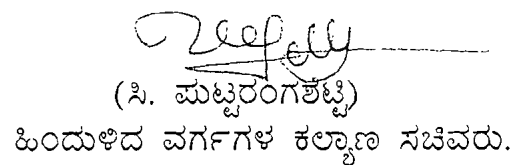 (ಸಿ. ಪುಟ್ಟರಂಗಶೆಟ್ಟಿ)
ಹಿಂದುಳಿದ ವರ್ಗಗಳ ಕಲ್ಯಾಣ ಸಚಿವರು.